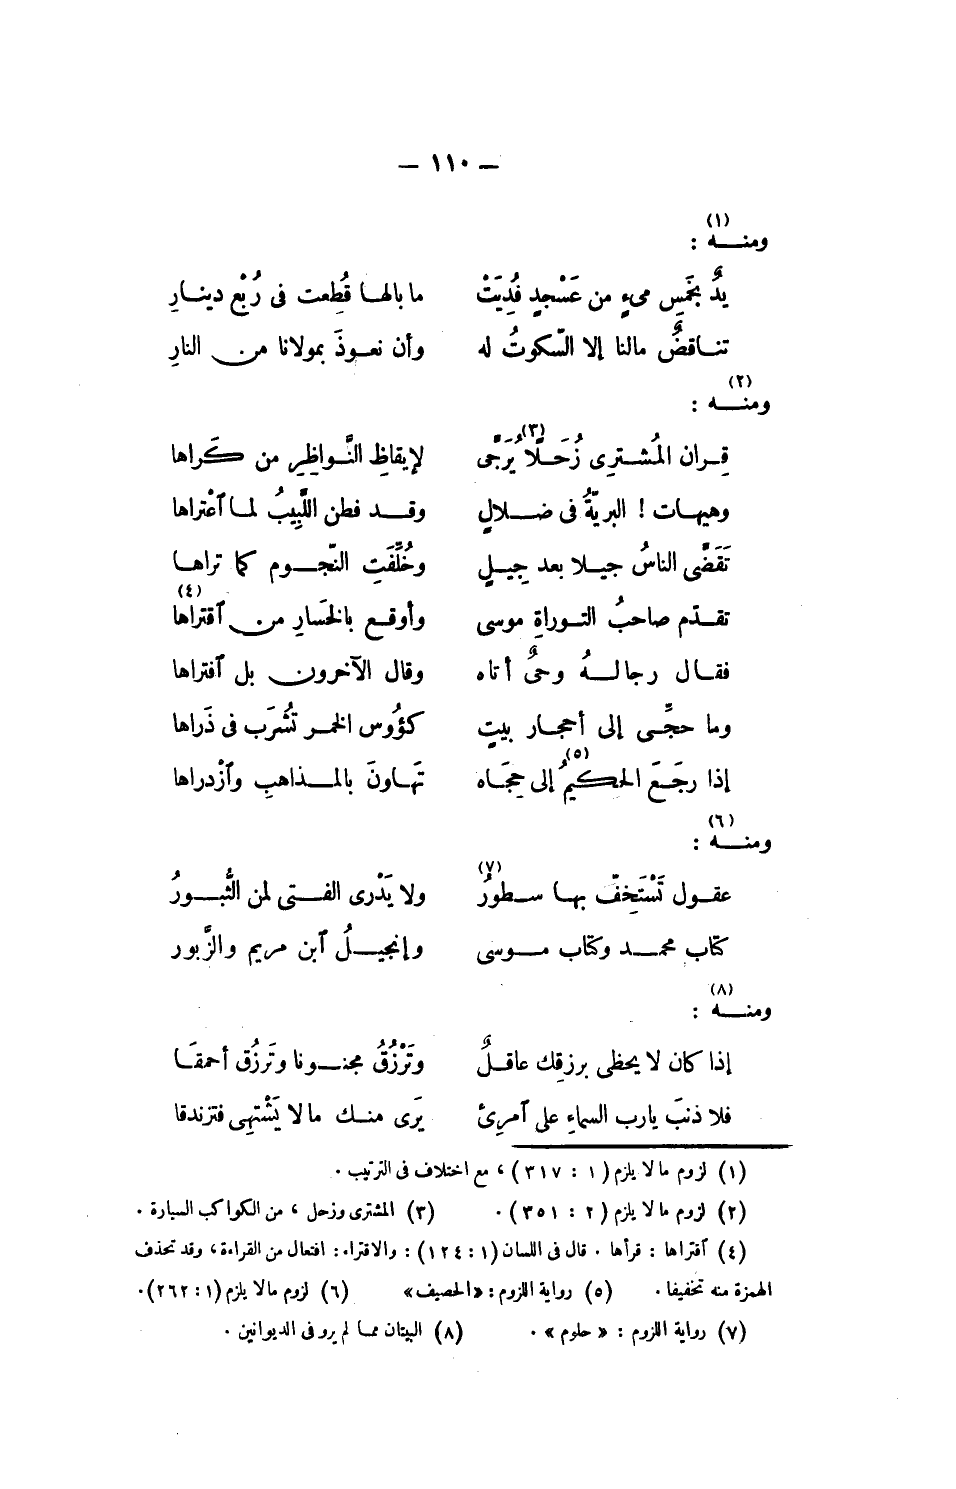 — ١١٠ —
ومنــه (١) :
يدٌ بخَمسِ مىءٍ من عَسْجدٍ فُدِيَتْ ما بالهـا قُطِعت فى رُبْع دينـارِ
تنـاقضٌ مالنا إلا السّكوتُ له وأن نعـوذَ بمولانا من النارِ
ومنــه (٢) :
قِـران المُشـترِى زُحَـلًا (٣) يُرَجَّى لإيقاظِ النَّـواظِرِ من كَراها
وهيهـات ! البريّةُ فى ضـلالٍ وقـد فطن اللَّبِيبُ لمـا ٱعْتراها
تَقَضَّى الناسُ جيـلا بعد جِيـلٍ وخُلِّفَتِ النّجـوم كما تراهـا
تقـدّم صاحبُ التـوراةِ موسى وأوقـع بالخَسَارِ من ٱقتراها (٤)
فقـال رجالـهُ وحىٌ أتاه وقال الآخرون بل ٱفتراها
وما حجِّـى إلى أحجـار بيتٍ كؤُوس الخمـر تُشْرَب فى ذَراها
إذا رجَـعَ الحكـيمُ (٥) إلى حِجَـاه تَهـاونَ بالمـذاهبِ وٱزْدراها
ومنــه (٦) :
عقـول تَسْتَخِفّ بهـا سـطورُ (٧) ولا يَدْرى الفـتى لمن الثُّبـورُ
كتاب محمـد وكتاب مـوسى وإنجيـلُ ٱبن مريم والزَّبور
ومنــه (٨) :
إذا كان لا يحظى برزقك عاقـلٌ وتَرْزُقُ مجنـونا وتَرزُق أحمقَـا
فلا ذنبَ يارب السماءِ على ٱمرِئ يَرى منـك مالا يَشْتهِى فتزندقا
(١) لزوم مالا يلزم (١ : ٣١٧) ، مع اختلاف فى الترتيب .
(٢) لزوم مالا يلزم (٢ : ٣٥١) . (٣) المشترى وزحل ، من الكواكب السيارة .
(٤) ٱقتراها : قرأها . قال فى اللسان (١ : ١٢٤) : والاقتراء : افتعال من القراءة ، وقد تحذف
الهمزة منه تخفيفا . (٥) رواية اللزوم : «الحصيف» (٦) لزوم مالا يلزم (١ : ٢٦٢) .
(٧) رواية اللزوم : « حلوم » . (٨) البيتان ممـا لم يرو فى الديوانين .